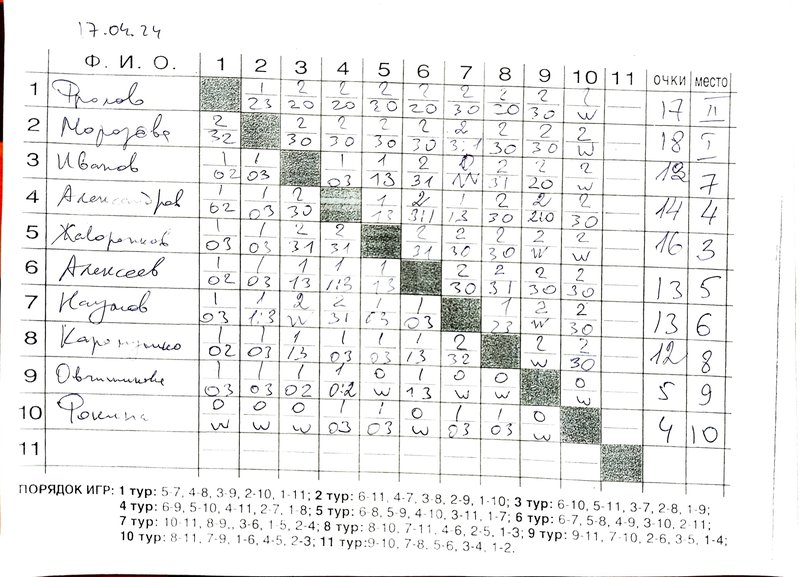 17.04.24
Ф. И. О. 1 2 3 4 5 6 7 8 9 10 11 очки место
1 Фролово 1/23 2/20 2/20 2/30 2/20 2/30 2/20 2/30 2/w 17 II
2 Морозова 2/32 2/30 2/30 2/30 2/30 2/3:1 2/30 2/30 2/w 18 I
3 Иванов 1/02 1/03 1/03 1/13 2/31 2/31 2/20 2/w 7
4 Александров 1/02 1/03 2/30 1/13 2/3:1 1/13 2/30 2/2:0 2/30 14 4
5 Жаворонков 1/03 1/03 2/31 2/31 2/31 2/30 2/30 2/w 2/w 16 3
6 Алексеев 1/02 1/03 1/13 1/1:3 1/13 2/30 2/31 2/30 2/30 13 5
7 Наумов 1/03 1/1:3 2/w 2/31 1/03 1/03 1/23 2/w 2/30 13 6
8 1/02 1/03 1/13 1/03 1/03 1/13 2/32 2/w 2/30 12 8
9 1/03 1/03 1/02 1/0:2 0/w 1/13 0/w 0/w 0/w 5 9
10 Фокина 0/w 0/w 0/w 1/03 1/03 0/w 1/03 1/03 0/w 4 10
11
ПОРЯДОК ИГР: 1 тур: 5-7, 4-8, 3-9, 2-10, 1-11; 2 тур: 6-11, 4-7, 3-8, 2-9, 1-10; 3 тур: 6-10, 5-11, 3-7, 2-8, 1-9;
4 тур: 6-9, 5-10, 4-11, 2-7, 1-8; 5 тур: 6-8, 5-9, 4-10, 3-11, 1-7; 6 тур: 6-7, 5-8, 4-9, 3-10, 2-11;
7 тур: 10-11, 8-9,, 3-6, 1-5, 2-4; 8 тур: 8-10, 7-11, 4-6, 2-5, 1-3; 9 тур: 9-11, 7-10, 2-6, 3-5, 1-4;
10 тур: 8-11, 7-9, 1-6, 4-5, 2-3; 11 тур:9-10, 7-8, 5-6, 3-4, 1-2,